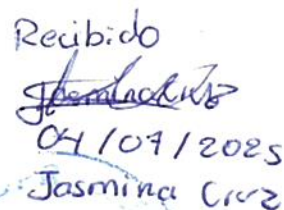 Recibido
04/07/2025
Jasmina Cruz